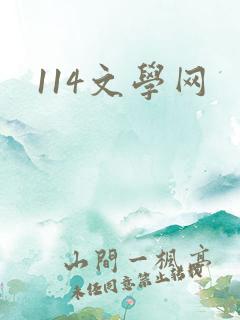 114文學网
山間一楓亭
未经同意禁止转载